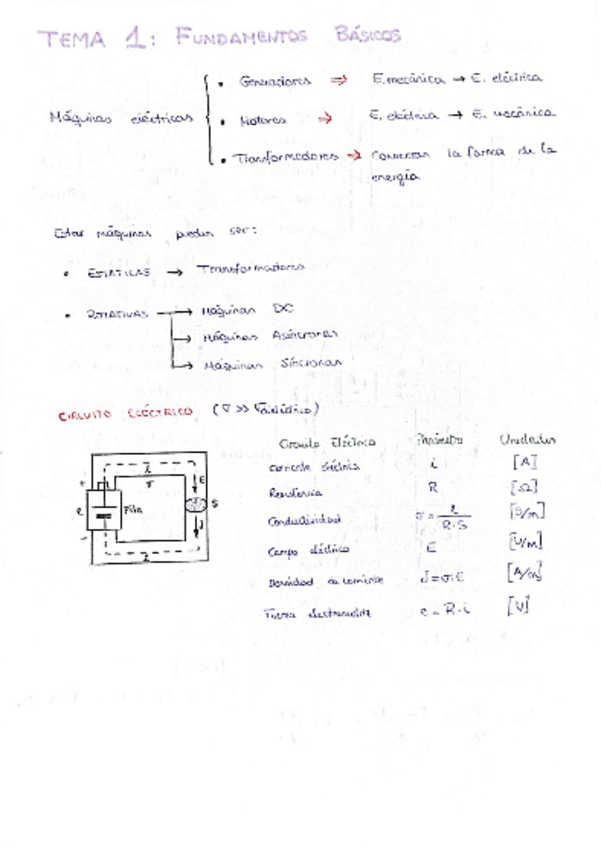 TEMA 1: FUNDAMENTOS BÁSICOS
• Generadores ⇒ E.mecánica → E. eléctrica
Máquinas eléctricas • Motores ⇒ E. eléctrica → E. mecánica
• Transformadores → Conservan la forma de la
energía
Estas máquinas pueden ser:
• ESTATICAS → Transformadores
• ROTATIVAS → Máquinas DC
→ Máquinas Asíncronas
→ Máquinas Síncronas
CIRCUITO ELÉCTRICO (σ >> σdieléctrico)
Circuito Eléctrico Parámetro Unidades
Corriente eléctrica i [A]
Resistencia R [Ω]
Conductividad σ = l / R·S [S/m]
Campo eléctrico E [V/m]
Densidad de corriente J = σ·E
Fuerza electromotriz e = R·i [V]
+ e - Pila l σ E S J l